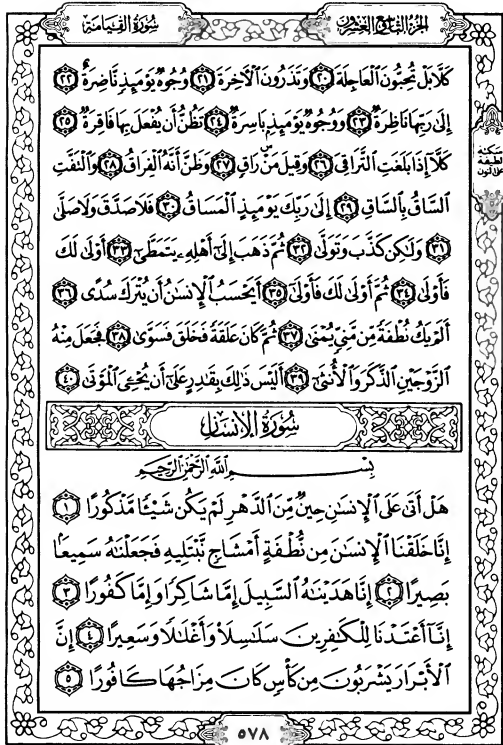 سُورَةُ القِيَامَةِ
الجُزءُ التَّاسِعُ وَالعِشْرُونَ
كَلَّا بَلْ تُحِبُّونَ ٱلْعَاجِلَةَ ٢٠ وَتَذَرُونَ ٱلْـَٔاخِرَةَ ٢١ وُجُوهٌ يَوْمَئِذٍ نَّاضِرَةٌ ٢٢
إِلَىٰ رَبِّهَا نَاظِرَةٌ ٢٣ وَوُجُوهٌ يَوْمَئِذٍۭ بَاسِرَةٌ ٢٤ تَظُنُّ أَن يُفْعَلَ بِهَا فَاقِرَةٌ ٢٥
كَلَّآ إِذَا بَلَغَتِ ٱلتَّرَاقِىَ ٢٦ وَقِيلَ مَنْ ۜ رَاقٍ ٢٧ وَظَنَّ أَنَّهُ ٱلْفِرَاقُ ٢٨ وَٱلْتَفَّتِ
ٱلسَّاقُ بِٱلسَّاقِ ٢٩ إِلَىٰ رَبِّكَ يَوْمَئِذٍ ٱلْمَسَاقُ ٣٠ فَلَا صَدَّقَ وَلَا صَلَّىٰ
٣١ وَلَـٰكِن كَذَّبَ وَتَوَلَّىٰ ٣٢ ثُمَّ ذَهَبَ إِلَىٰٓ أَهْلِهِۦ يَتَمَطَّىٰٓ ٣٣ أَوْلَىٰ لَكَ
فَأَوْلَىٰ ٣٤ ثُمَّ أَوْلَىٰ لَكَ فَأَوْلَىٰٓ ٣٥ أَيَحْسَبُ ٱلْإِنسَـٰنُ أَن يُتْرَكَ سُدًى ٣٦
أَلَمْ يَكُ نُطْفَةً مِّن مَّنِىٍّ يُمْنَىٰ ٣٧ ثُمَّ كَانَ عَلَقَةً فَخَلَقَ فَسَوَّىٰ ٣٨ فَجَعَلَ مِنْهُ
ٱلزَّوْجَيْنِ ٱلذَّكَرَ وَٱلْأُنثَىٰٓ ٣٩ أَلَيْسَ ذَٰلِكَ بِقَـٰدِرٍ عَلَىٰٓ أَن يُحْـِۧىَ ٱلْمَوْتَىٰ ٤٠
سُورَةُ الإِنسَان
بِسْمِ ٱللَّهِ ٱلرَّحْمَـٰنِ ٱلرَّحِيمِ
هَلْ أَتَىٰ عَلَى ٱلْإِنسَـٰنِ حِينٌ مِّنَ ٱلدَّهْرِ لَمْ يَكُن شَيْـًٔا مَّذْكُورًا ١
إِنَّا خَلَقْنَا ٱلْإِنسَـٰنَ مِن نُّطْفَةٍ أَمْشَاجٍ نَّبْتَلِيهِ فَجَعَلْنَـٰهُ سَمِيعًۢا
بَصِيرًا ٢ إِنَّا هَدَيْنَـٰهُ ٱلسَّبِيلَ إِمَّا شَاكِرًا وَإِمَّا كَفُورًا ٣
إِنَّآ أَعْتَدْنَا لِلْكَـٰفِرِينَ سَلَـٰسِلَا۟ وَأَغْلَـٰلًا وَسَعِيرًا ٤ إِنَّ
ٱلْأَبْرَارَ يَشْرَبُونَ مِن كَأْسٍ كَانَ مِزَاجُهَا كَافُورًا ٥
سكتة
لطيفة
على النون
٥٧٨